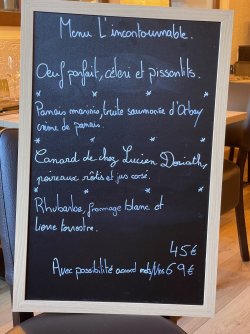 Menu L'incontournable.
Oeuf parfait, céleri et pissenlits.
Panais marinés, truite saumonée d'Orbey
crème de panais.
* * * *
Canard de chez Lucien Doriath,
poireaux rôtis et jus corsé.
* * * *
Rhubarbe, fromage blanc et
lierre terrestre.
45€
Avec possibilité accord mets/Vins 69€